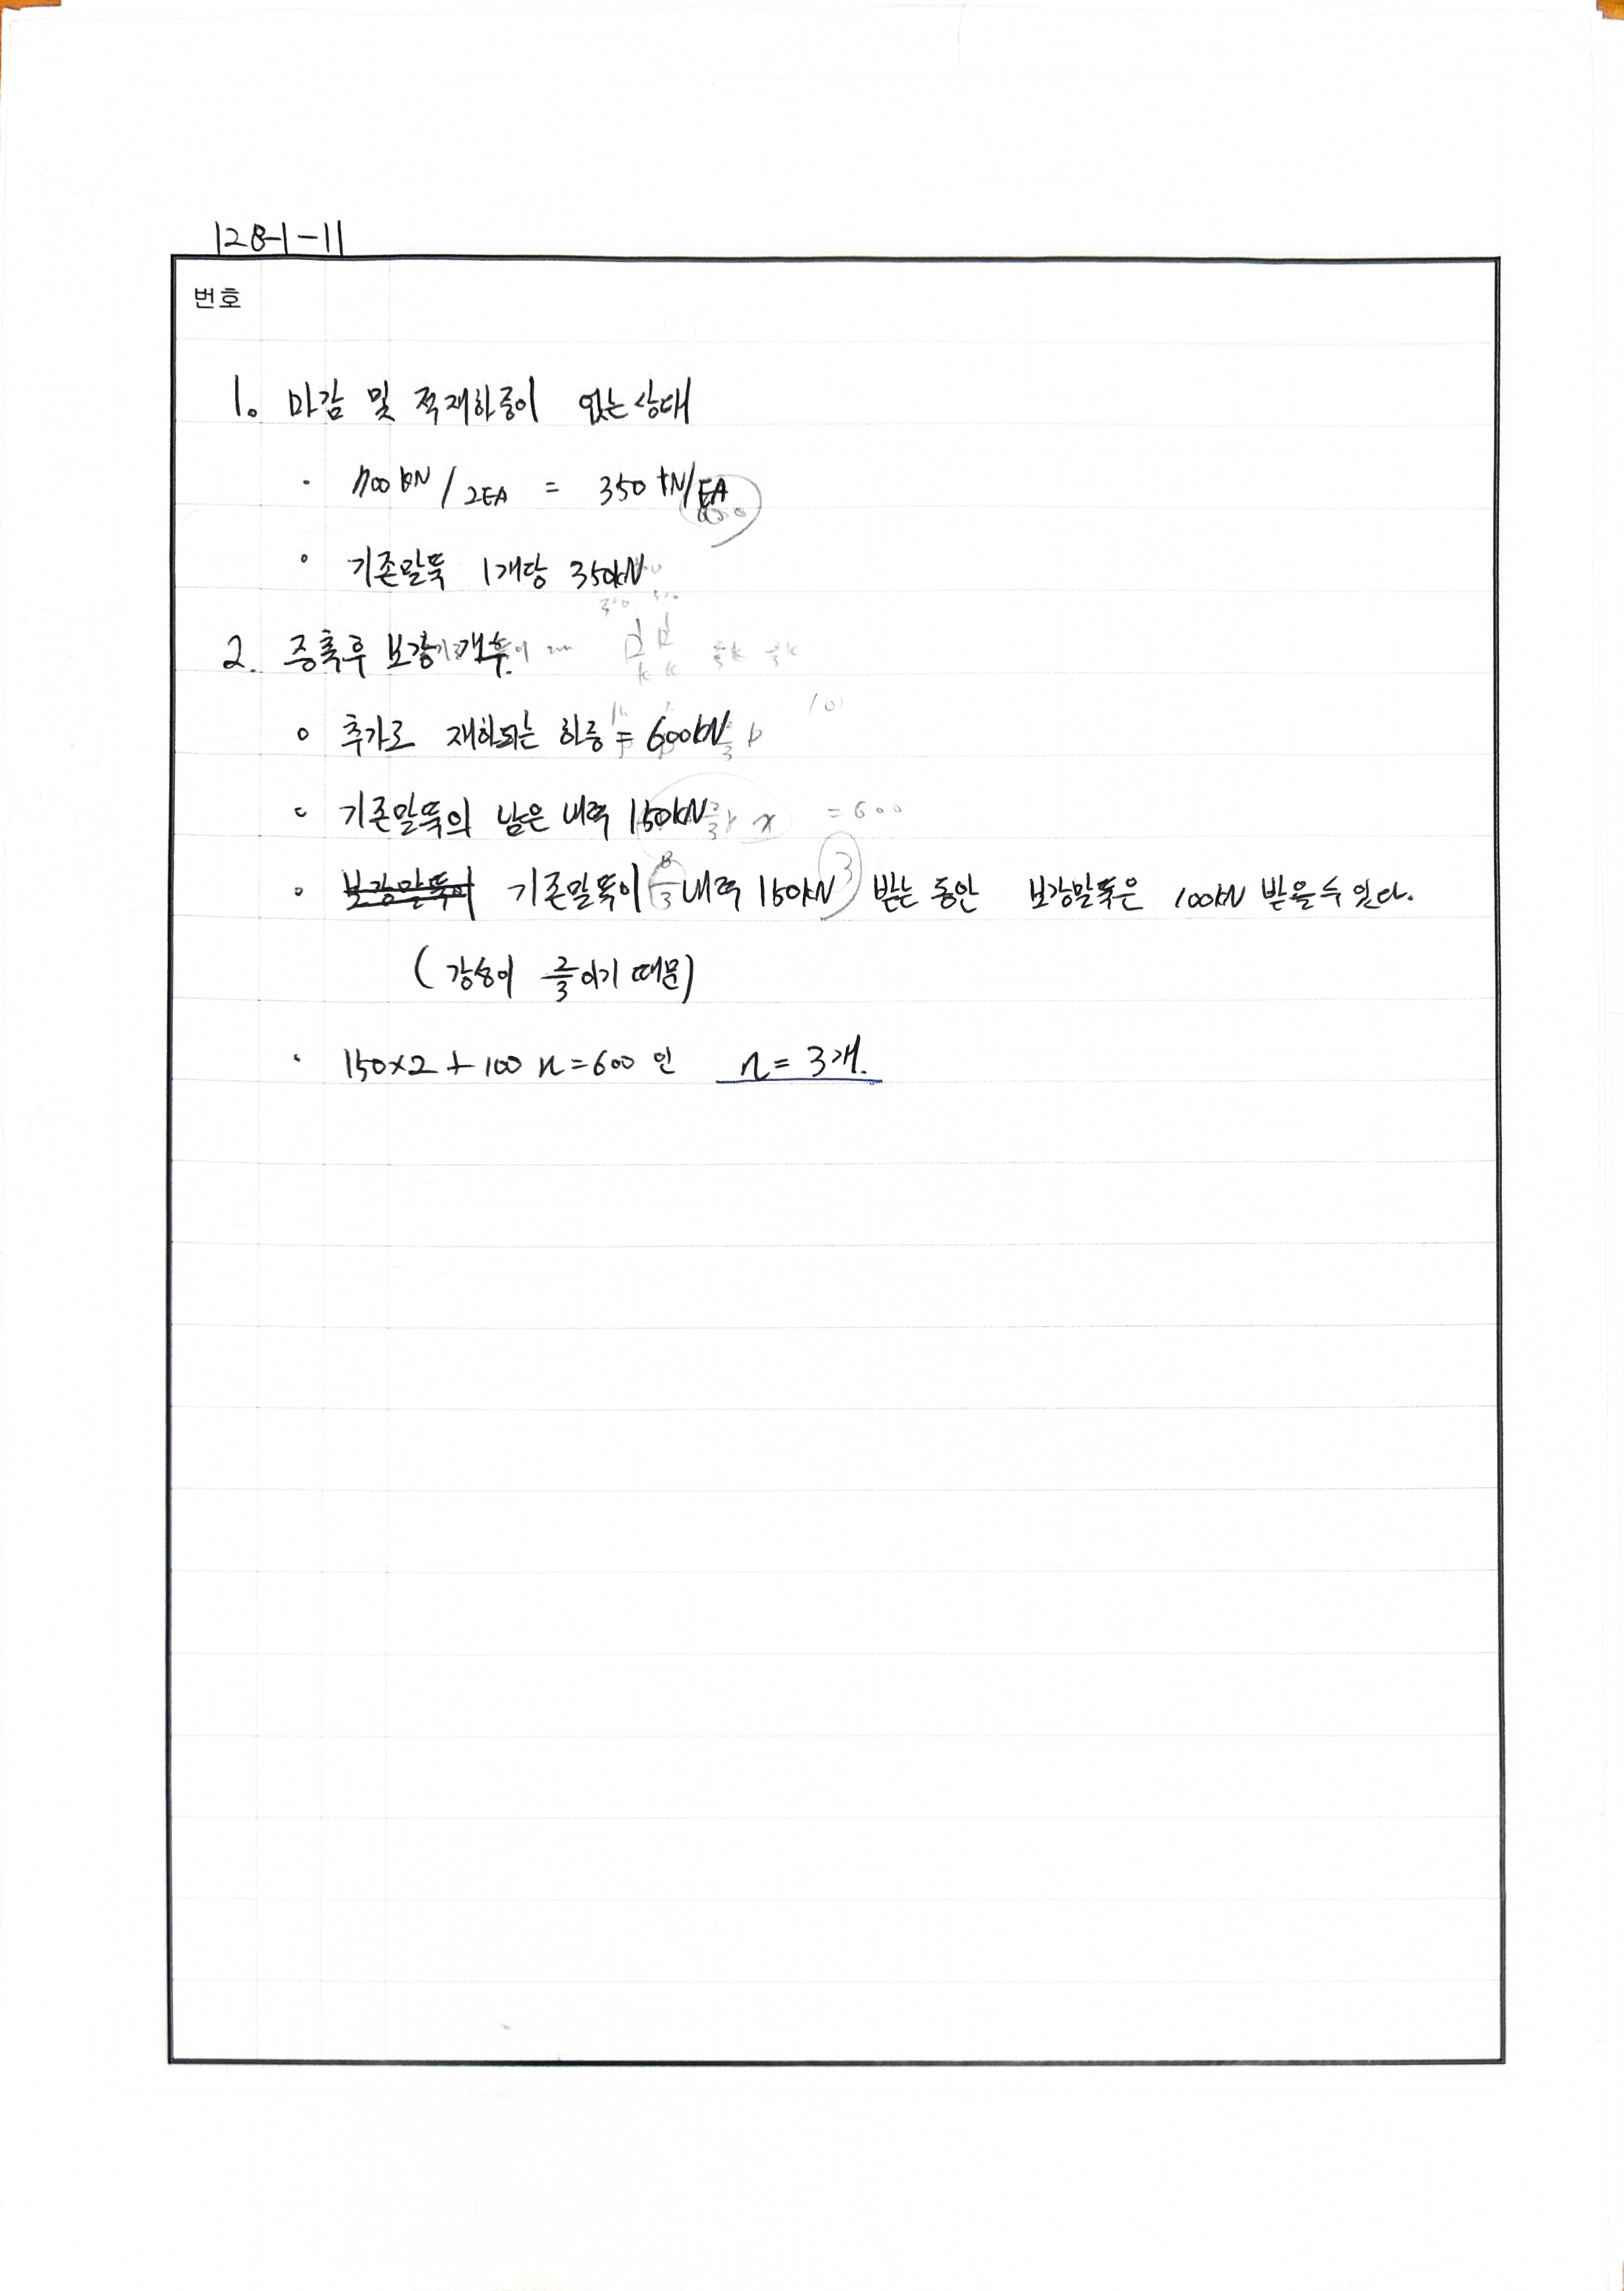 128-1-11
번호
1. 마감 및 적재하중이 없는상태
· 700kN / 2EA = 350kN/EA
· 기존말뚝 1개당 350kN
2. 증축후 보강 개수.
○ 추가로 재하되는 하중 = 600kN
○ 기존말뚝의 남은 내력 150kN
= 600
○ 보강말뚝이 기존말뚝이 내력 150kN 받는 동안 보강말뚝은 100kN 받을수 있다.
( 강성이 2/3 이기 때문)
· 150×2 + 100 n = 600 인 n = 3개.